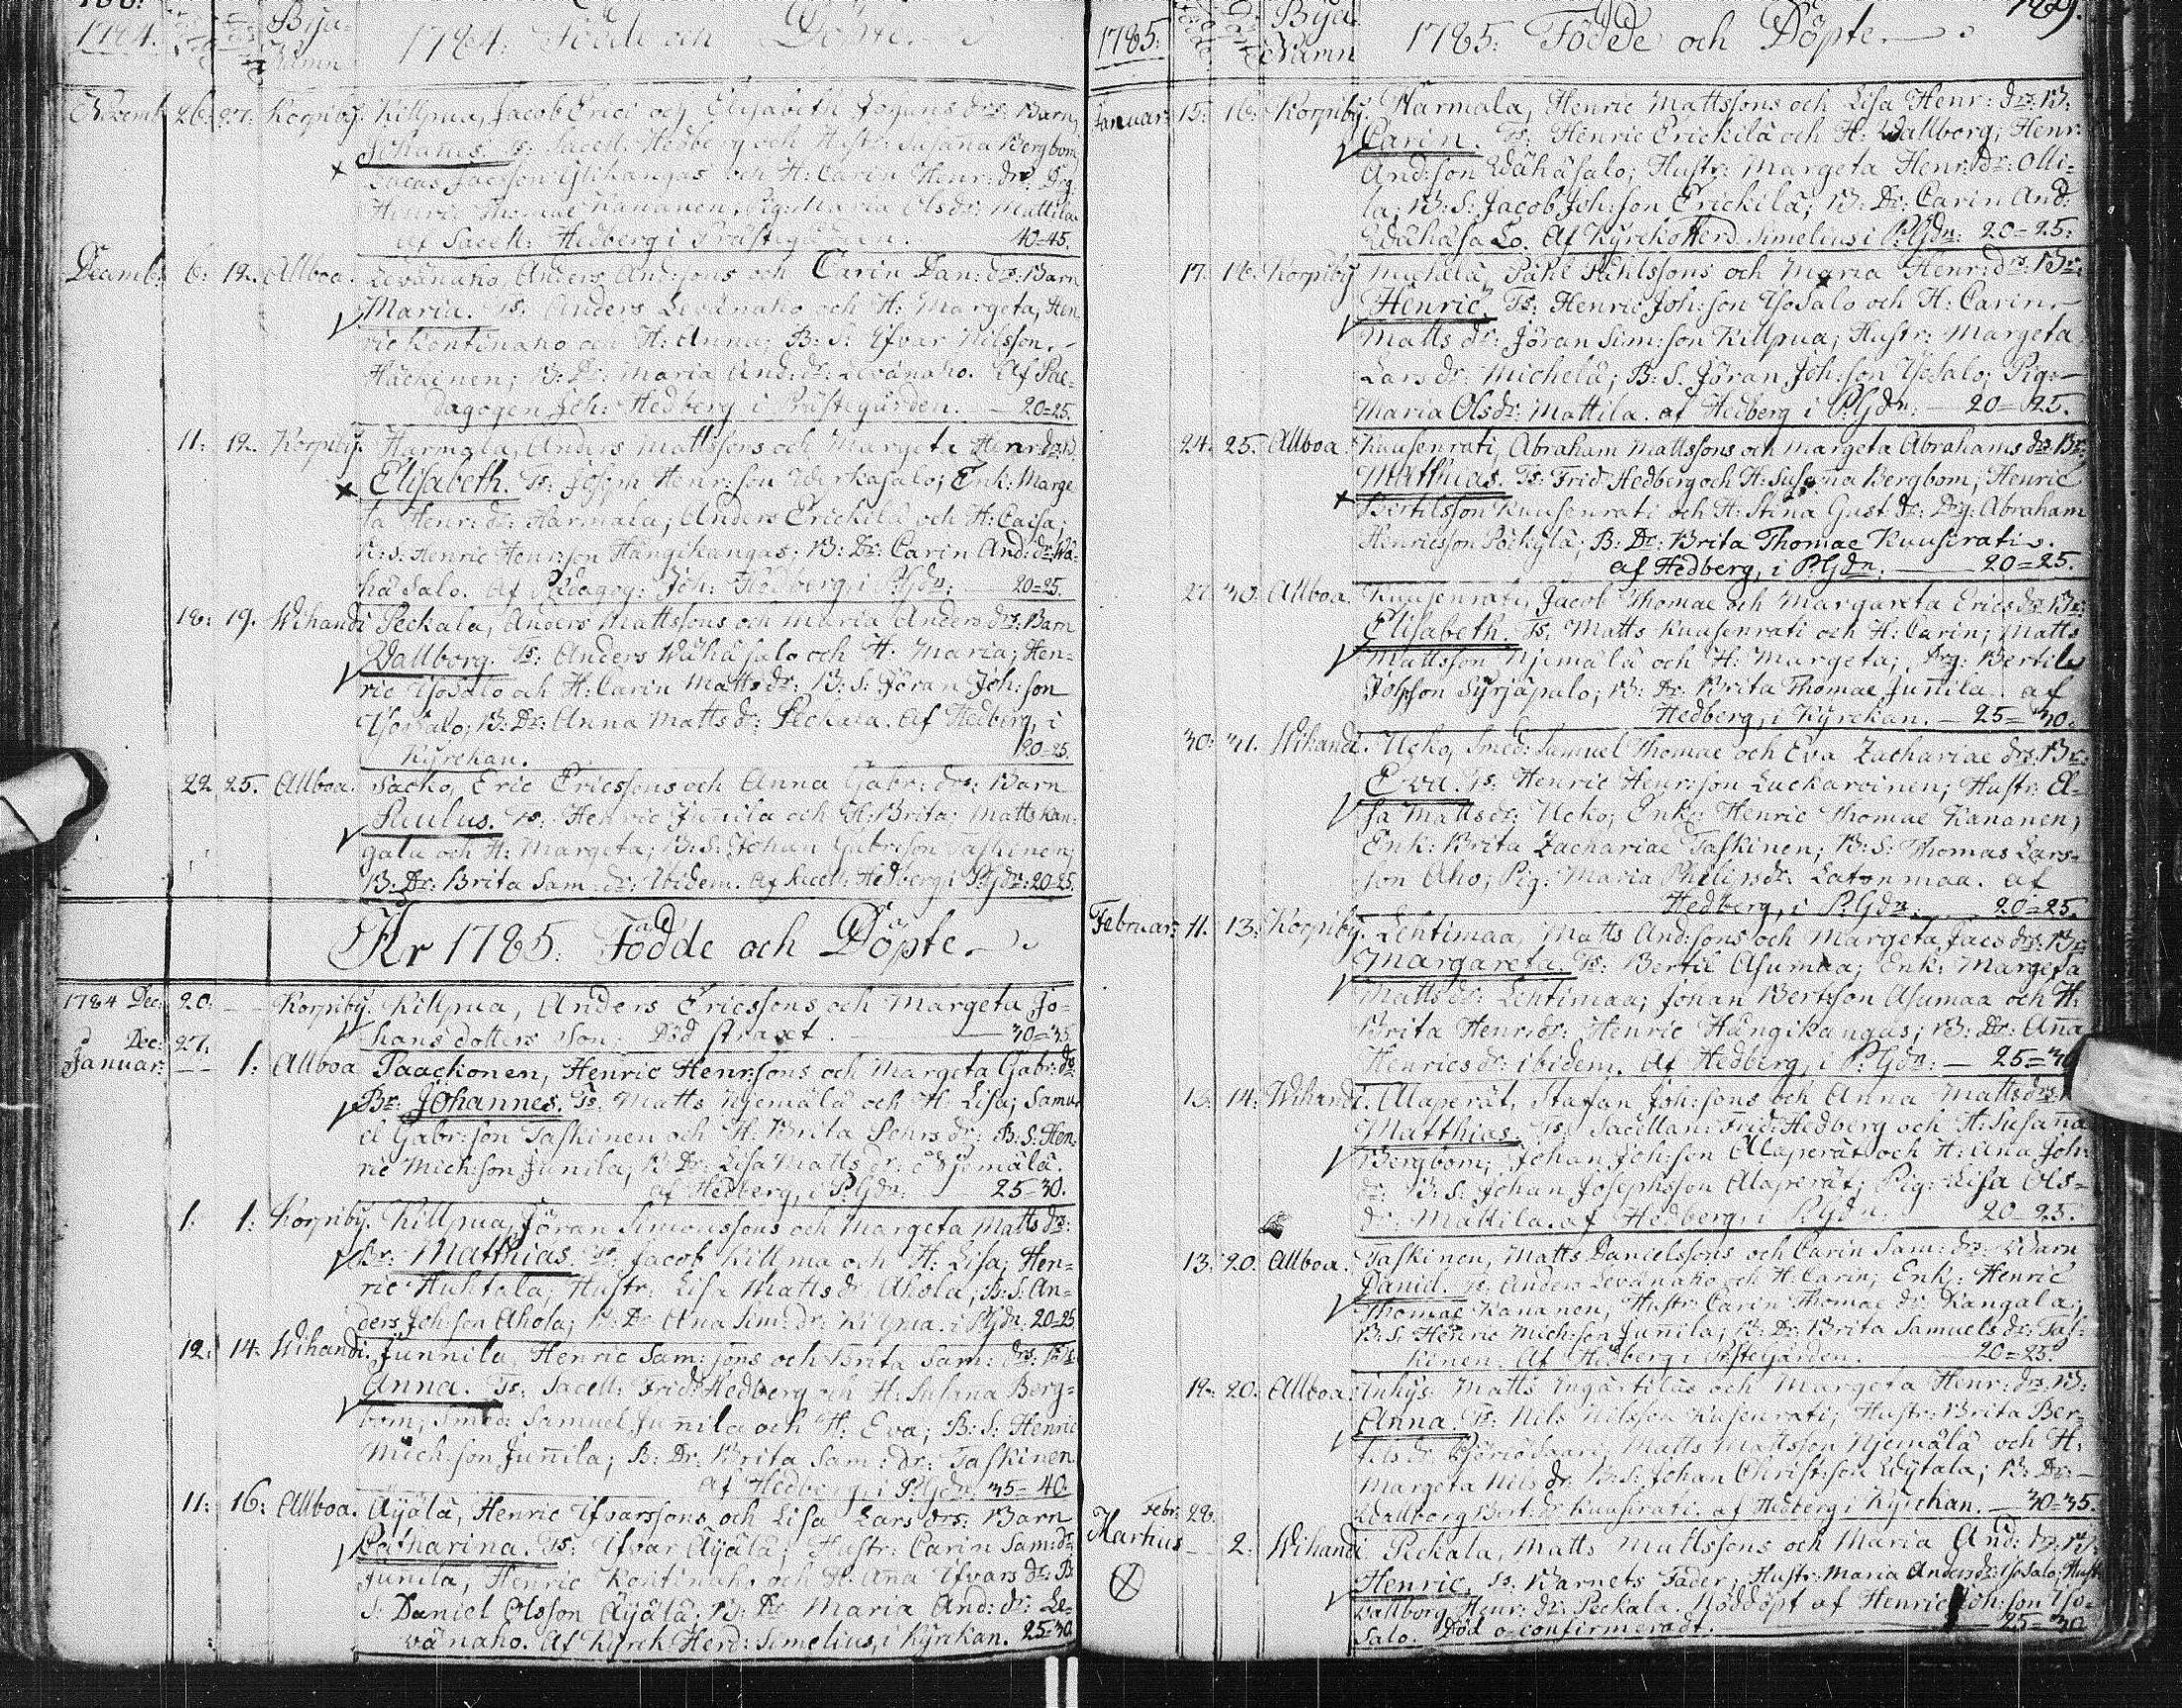 1784.
Bya-
Namn
1784. Födde och Döpte.
Novemb. 26. 27. Korpiby. Killpua, Jacob Erici och Elisabeth Johans drs: Barn
Johanes. Ts: Sacell. Hedberg och Hustr: Susaña Bergbom,
och H: Carin Henr: dr: Drg:
Henric Thomae Kananen, Pig: Maria Olsdr: Mattila.
af Sacell: Hedberg i Prästegården. 40=45.
Decemb: 6: 12. Allboa. Levänaho, Anders And:sons och Carin Dan: drs: Barn
Maria. Ts: Anders Levänaho och H: Margeta, Hen
ric Kontinaho och H: Anna; B: S: Ifvar Nilsson
Häckinen; B: Dr: Maria And: dr: Levänaho. Af Pae-
dagogen Joh: Hedberg i Prästegården. 20=25.
11: 12. Korpiby. Harmala, Anders Mattssons och Margeta Henr: drs B.
Elisabeth. Ts: Joseph Henr: son Wirkasalo; Enk: Marge
ta Henr: dr: Harmala; Anders Erickilä och H: Caisa;
B: S: Henric Henr:son Hångikangas; B: Dr: Carin And: dr: Wä-
häsalo. Af Pædagog: Joh: Hedberg, i P:Gdn: 20=25.
18: 19. Wihandi Peckala, Anders Mattssons och Maria Anders drs: Barn
Wallborg. Ts: Anders Wähäsalo och H: Maria; Hen-
ric Ysosalo och H: Carin Matts dr: B: S: Jöran Joh:son
Ysosalo; B: Dr: Anna Matts dr: Peckala. Af Hedberg, i
Kyrckan. 20=25.
22 25. Allboa. Sacko, Eric Ericssons och Anna Gabr: drs: Barn
Paulus. Ts: Henric Juñila och H: Brita; Matts Kan-
gala och H: Margeta; B: S: Johan Gabr:son Taskinen;
B: Dr: Brita Sam: dr: Ibidem. Af Sacell: Hedberg i P:Gdn: 20=25.
År 1785. Födde och Döpte.
1784 Dec: 20: — Korpiby. Killpua, Anders Ericssons och Margeta Jo-
hans dotters Son; Död straxt. 30=35
Dec: 27.
Januar: — 1: Allboa Paackonen, Henric Henr:sons och Margeta Gabr: drs
Br: Johannes. Ts: Matts Njemälä och H: Lisa; Samu-
el Gabr:son Taskinen och H: Brita Pehrs dr: B: S: Hen-
ric Mich:son Junila, B: Dr: Lisa Matts dr: Njemälä.
af Hedberg, i P:Gdn: 25=30.
1: 1: Korpiby. Killpua, Jöran Simonssons och Margeta Matts drs:
Br: Matthias. Ts: Jacob Killpua och H: Lisa; Hen-
ric Huhtala; Hustr: Lisa Matts dr: Ahola, B: S: An-
ders Joh:son Ahola; B: Dr Aña Sim: dr: Killpua. i P:Gdn: 20=25
12: 14: Wihandi. Junnila, Henric Sam:sons och Brita Sam: drs: Br:
Anna. Ts: Sacell: Frid: Hedberg och H: Susana Berg-
bom; Smed: Samuel Juñila och H: Eva; B: S: Henric
Mich:son Juñila; B: Dr: Brita Sam: dr: Taskinen
af Hedberg, i P:Gdn: 35=40.
11: 16: Allboa. Äyälä, Henric Ifvarssons och Lisa Lars drs: Barn
Catharina. Ts: Ifvar Äyälä; Hustr: Carin Sam: dr
Juñila, Henric Kontinaho och H: Aña Ifvars dr: B:
S: Daniel Olsson Äyälä; B: Dr Maria And: dr: Le-
vänaho. Af Kyrck Herd: Simelius, i Kyrckan. 25=30
1785:
Bya
Namn
1785: Födde och Döpte.
Januar: 15: 16: Korpiby. Harmala, Henric Mattssons och Lisa Henr: drs: B:
Carin. Ts: Henric Erickilä och H: Wallborg; Henr:
And:son Wähäsalo; Hustr: Margeta Henr: dr: Olli-
la; B: S: Jacob Joh:son Erickilä; B: Dr: Carin And:
Wähäsalo. Af Kyrcko Herd. Simelius i P:Gdn: 20=25:
17: 18: Korpiby Michelä, Påhl Påhlssons och Maria Henr: drs: Br:
Henric. Ts: Henric Joh:son Ysosalo och H: Carin
Matts dr: Jöran Sim:son Killpua; Hustr: Margeta
Lars dr: Michelä; B: S. Jöran Joh:son Ysosalo; Pig:
Maria Olsdr: Mattila. af Hedberg i P:Gdn: 20=25.
24. 25. Allboa Kuusenrati, Abraham Mattssons och Margeta Abrahams drs Br:
Matthias. Ts: Frid: Hedberg och H: Susaña Bergbom; Henric
Bertilsson Kuusenrati och H: Stina Gust: dr: Drg: Abraham
Henricsson Pöikylä; B: Dr: Brita Thomae Kuusirati.
af Hedberg, i P:Gdn. 20=25.
27 30. Allboa. Kuusenrati, Jacob Thomae och Margareta Erics drs Br:
Elisabeth. Ts. Matts Kuusenrati och H: Carin; Matts
Mattsson Njemälä och H: Margeta; Drg: Bertil
Johsson Syrjäpalo; B: Dr: Brita Thomae Juñila. af
Hedberg, i Kyrckan. 25=30.
30: 31. Wihandi. Ucko, Smed: Samuel Thomae och Eva Zachariae drs: Br:
Eva. Ts: Henric Henr:son Luckaroinen; Hustr: El-
sa Matts dr: Ucko; Enk: Henric Thomae Kananen;
Enk: Brita Zachariae Taskinen; B: S: Thomas Lars-
son Aho; Pig: Maria Philips dr: Latonmaa. af
Hedberg, i P:Gdn: 20=25.
Februar: 11. 13: Korpiby. Lehtimaa, Matts And:sons och Margeta Jacs drs: Br:
Margareta. Ts: Bertil Asumaa; Enk: Margeta
Matts dr: Lehtimaa; Johan Bertsson Asumaa och H:
Brita Henr:dr: Henric Hångikangas; B: Dr: Aña
Henrics dr: ibidem. Af Hedberg, i P:Gdn: 25=30
13: 14: Wihandi. Alaperät, Stafan Joh:sons och Anna Matts drs:
Matthias. Ts: Sacellan: Frid: Hedberg och H: Susaña
Bergbom; Johan Joh:son Alaperät och H: Aña Joh:
dr: B: S: Johan Josephsson Alaperät; Pig: Lisa Ols-
dr: Mattila. af Hedberg, i P:Gdn: 20=25.
13: 20. Allboa. Taskinen, Matts Danielssons och Carin Sam: drs: Barn
Daniel. Ts: Anders Levänaho och H: Carin; Enk: Henric
Thomae Kananen, Hustr: Carin Thomae dr: Kangala;
B: S: Henric Mich:son Juñila; B: Dr: Brita Samuels dr: Tas-
kinen. Af Hedberg i Prstegården. 20=25.
19: 20: Allboa: Inhys: Matts Ingärtiläs och Margeta Henr: drs B:
Anna. Ts: Nils Nilsson Kusenrati; Hustr: Brita Ber-
tils dr Matts Mattsson Njemälä och H:
Margeta Nils dr: B: S: Johan Christ:son Wytala; B: Dr:
Wallborg Bert: dr Kuusirati. af Hedberg i Kyrckan. 30=35.
Febr: 28.
Martius — 2. Wihandi Peckala, Matts Mattssons och Maria And: drs B:
Henric. Ts. Barnets Fader; Hustr: Maria Anders dr: Ysosalo; Hustr
Wallborg Henr: dr: Peckala. Nöddöpt af Henric Joh:son Yso-
salo. Död o-confirmeradt. 25=30